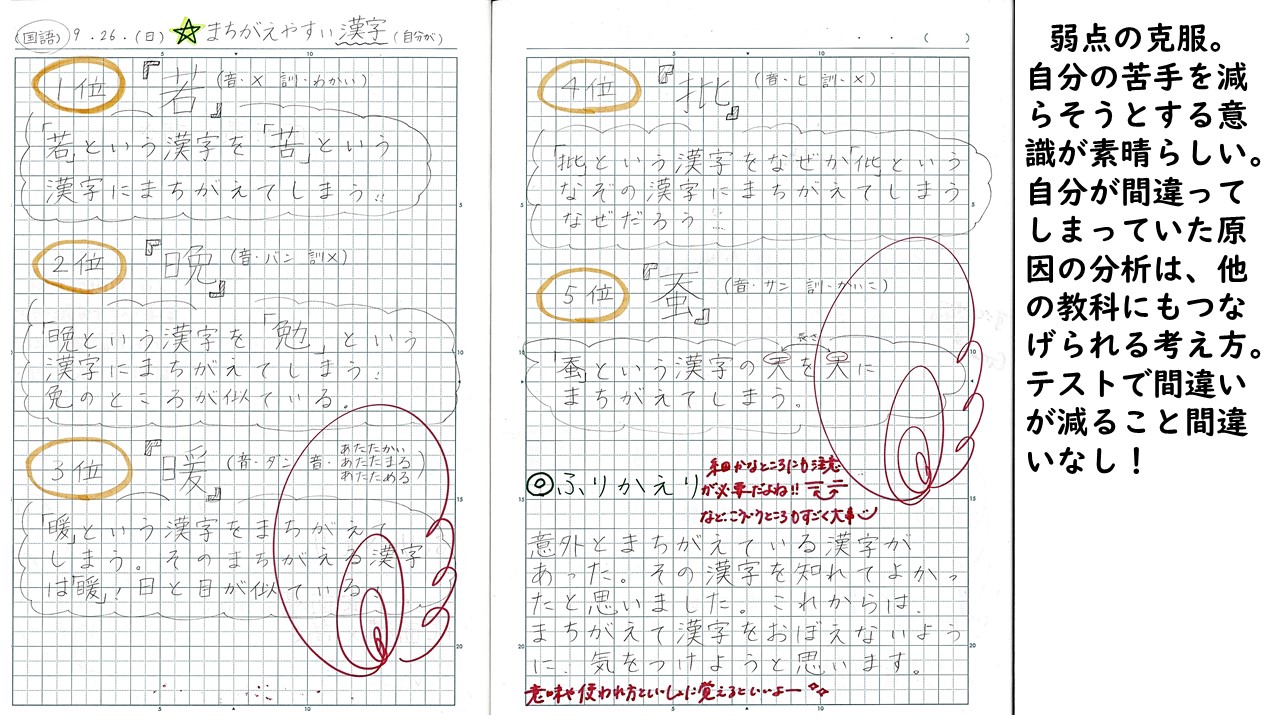 (国語) 9.26.(日) ☆まちがえやすい漢字(自分が)
1位 『若』(音・× 訓・わかい)
「若」という漢字を「苦」という
漢字にまちがえてしまう!!
2位 『晩』(音・バン 訓×)
「晩」という漢字を「勉」という
漢字にまちがえてしまう!
免のところが似ている。
3位 『暖』(音・ダン 音・あたたかい
あたたまる
あたためる)
「暖」という漢字をまちがえて
しまう。そのまちがえる漢字
は「暖」!日と目が似ている!
4位 『批』(音・ヒ 訓・×)
「批」という漢字をなぜか「仳」という
なぞの漢字にまちがえてしまう
なぜだろう…
5位 『蚕』(音・サン 訓・かいこ)
長さ
「蚕」という漢字の天を天に
まちがえてしまう。
◎ふりかえり
細かなところにも注意
が必要だよね!!
など、こういうところもすごく大事
意外とまちがえている漢字が
あった。その漢字を知れてよかっ
たと思いました。これからは、
まちがえて漢字をおぼえないよう
に、気をつけようと思います。
意味や使われ方といっしょに覚えるといいよー
弱点の克服。
自分の苦手を減
らそうとする意
識が素晴らしい。
自分が間違って
しまっていた原
因の分析は、他
の教科にもつな
げられる考え方。
テストで間違い
が減ること間違
いなし!